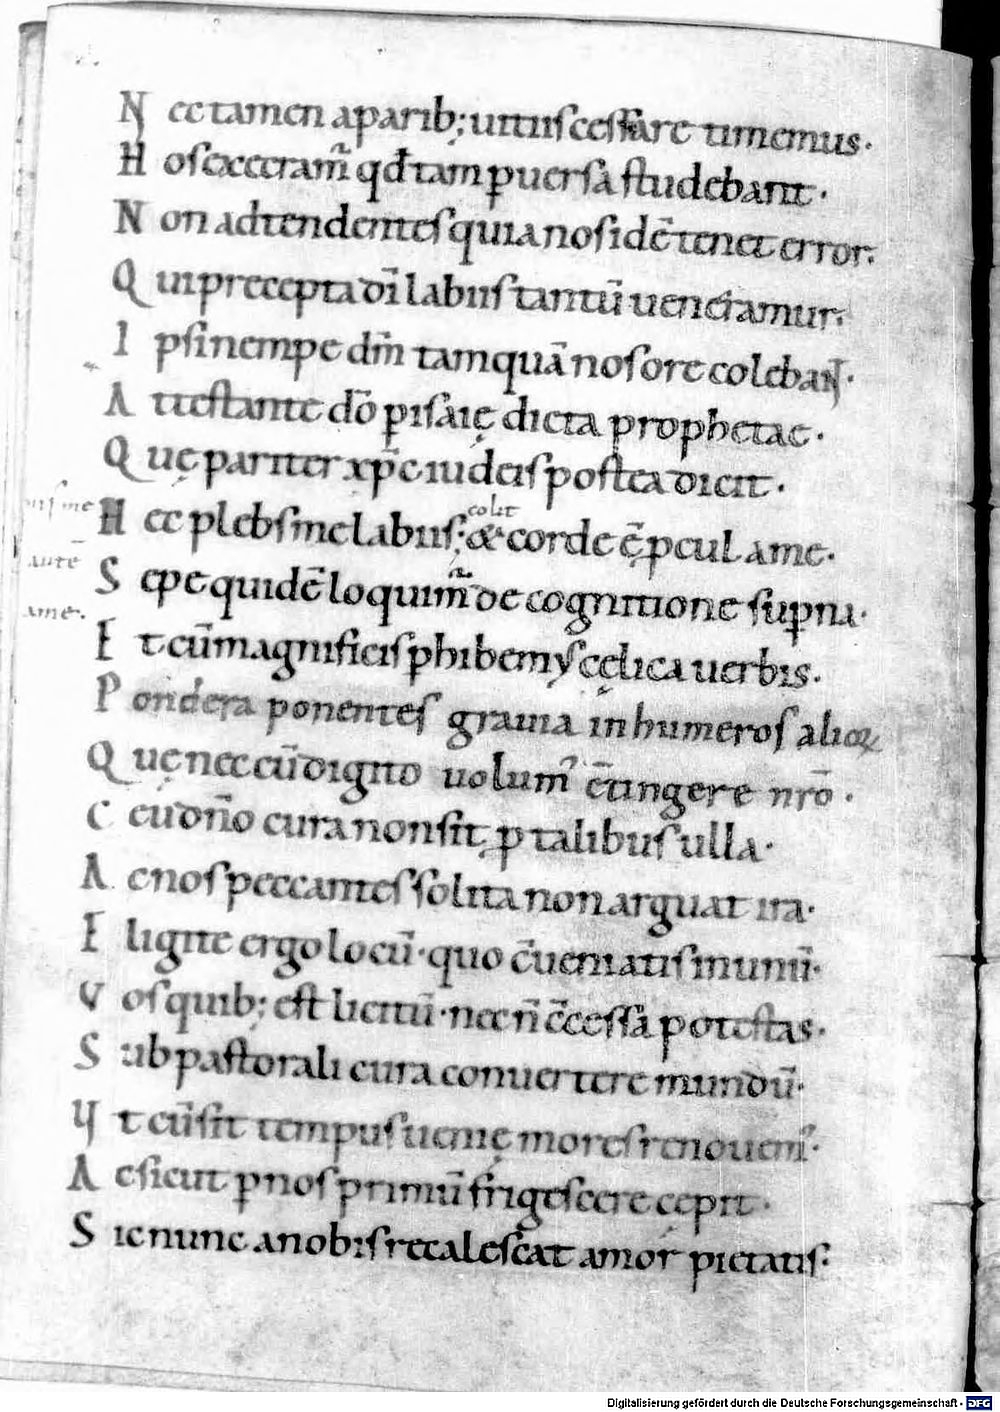 Nec tamen a parib; uitiis cessare timemus.
Hos execram̃ qđ tam ꝑuersa studebant.
Non adtendentes quia nos idē tenet error.
Qui precepta dī labiis tantū ueneramur.
Ipsi nempe dm̄ tamquā nos ore colebant.
Attestante dō ꝑ isaię dicta prophetae.
Quę pariter xp̄c iudeis postea dicit.
Hec plebs me labiis; colit & corde ē ꝓcul a me.
Sepe quidē loquim̃ de cognitione suꝑna.
Et cū magnificis ꝑhibemus cęlica uerbis.
Pondera ponentes grauia in humeros alioꝝ
Quę nec cū digito uolum᾽ c̄tingere nr̄o.
Ceu dn̄o cura non sit ꝓ talibus ulla.
Ac nos peccantes solita non arguat ira.
Eligite ergo locū. quo c̄ueniatis in unū.
Vos quib; est licitū. nec n̄ c̄cessa potestas.
Sub pastorali cura conuertere mundū.
Vt cū sit tempus uenię mores renouem᾽.
Ac sicut ꝑ nos primū frigescere cępit.
Sic nunc a nobis recalescat amor pietatis.
autē
a me.
Digitalisierung gefördert durch die Deutsche Forschungsgemeinschaft - DFG